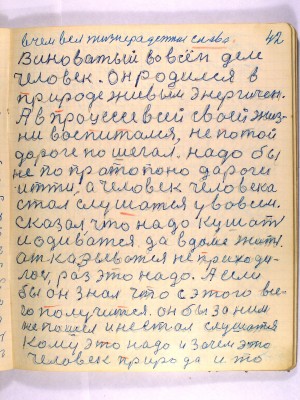 в чем вся жизнерадостная слава.
42
Виноватый во всём деле
человек. Он родился в
природе живым энергичен.
А в процессе всей своей жиз-
ни воспитался, не по той
дороге пошегал. надо бы
не по протопоно дароги
итти, а человек человека
стал слушатся у во всем.
сказал что надо кушать
и одиватся да в доме жить.
отказыватся не приходи-
лось, раз это надо. А если
бы он знал что с этого все-
го получится. он бы за ним
не пошел и не стал слушатся
кому это надо и зачем это
человек природа и то